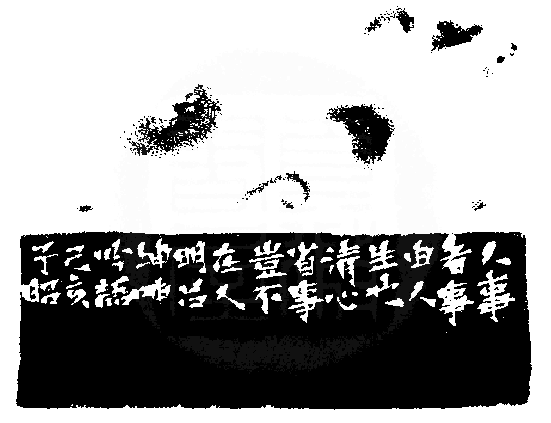 人事
者事
由人
生也
清心
省事
豈不
在人
明呂
坤呻
吟語
己亥
子昭